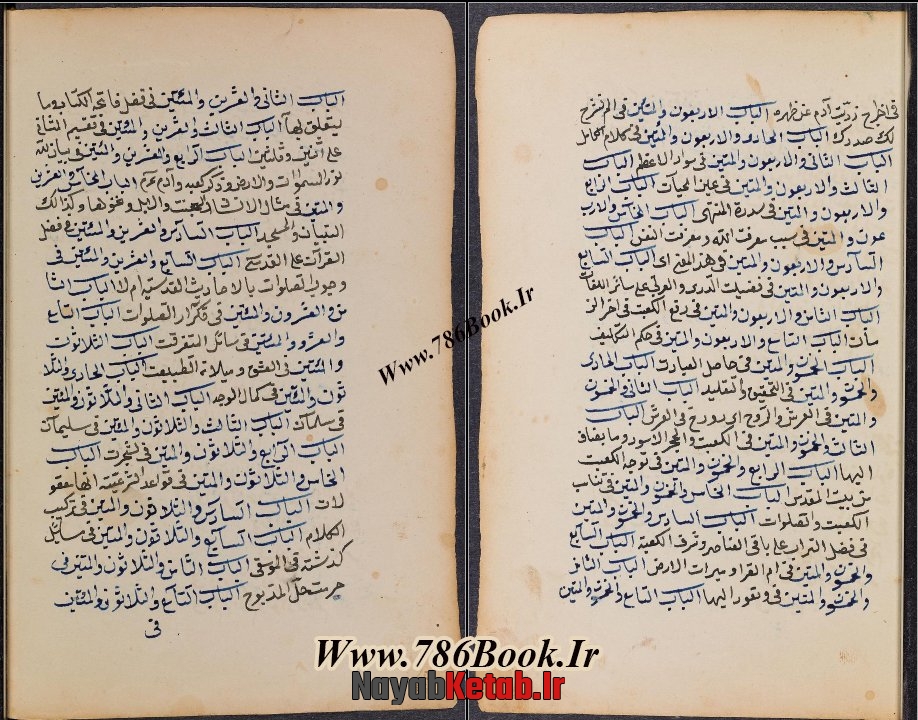 الباب الثاني والعشرين والمئتين في فضل فاتحة الكتاب وما
يتعلق لها الباب الثالث والعشرين والمئتين في تقسيم الثاني
على اثنين وثلثين الباب الرابع والعشرين والمئتين في بيان الله
نور السموات والارض وذكر كعبه وآدم الباب الخامس والعشرين
والمئتين في مثال والابل ونحوها وكذالك
والمسجد الباب السادس والعشرين والمئتين في فضل
القرآن على القدسي الباب السابع والعشرين والمئتين في
وجوب الصلوات بالاحاديث القدسية ام لا الباب الثا
من والعشرون والمئتين في تكرار الصلوات الباب التاسع
والعشرون والمئتين في مسائل المتفرقت الباب الثلاثون
والمئتين في العشق وميلانه الطبيعت الباب الحادي والثلا
ثون والمئتين في كمال الوجه الباب الثاني والثلاثون والمئتين
في سلمان الباب الثالث والثلاثون والمئتين في سليمان
الباب الرابع والثلاثون والمئتين في شجرت الباب
الخامس والثلاثون والمئتين في قواعد الشرعيته انها معقو
لات الباب السادس والثلاثون والمئتين في تركيب
الكلام الباب السابع والثلاثون والمئتين في مسائل
كذشته في الموسقى الباب الثامن والثلاثون والمئتين في
حرمت حل المذبوح الباب التاسع والثلاثون والمئتين
في
في اخراج ذريت آدم عن ظهره الباب الاربعون والمئتين في الم نشرح
لك صدرك الباب الحادي والاربعون والمئتين في كلام الكامل
الباب الثاني والاربعون والمئتين في سواد الاعظم الباب
الثالث والاربعون والمئتين في عين الحيات الباب الرابع
والاربعون والمئتين في سدرة المنتهى الباب الخامس والارب
عون والمئتين في سبب معرفت الله ومعرفت النفس الباب
السادس والاربعون والمئتين في هذا المعنى اى الباب السابع
والاربعون والمئتين في فضيلت الدرى والعربي على سائر اللغات
الباب الثامن والاربعون والمئتين في رفع الكعبت في آخر الز
مان الباب التاسع والاربعون والمئتين في حكم التكليف
الباب الخمسون والمئتين في حاصل العبارت الباب الحادي
والخمسون والمئتين في التحقيق والتقليد الباب الثاني والخمسون
والمئتين في العرش والروح اى روح في العرش الباب
الثالث والخمسون والمئتين في الكعبت والحجر الاسود وما يضاف
اليها الباب الرابع والخمسون والمئتين في توجه الكعبت
من بيت المقدس الباب الخامس والخمسون والمئتين في تناسب
الكعبت والصلوات الباب السادس والخمسون والمئتين
في فضل التراب على باقي العناصر وشرف الكعبة الباب السابع
والخمسون والمئتين في ام القرا وميراث الارض الباب الثامن
والخمسون والمئتين في وتعود اليها الباب التاسع والخمسون والمئتين
Www.786Book.Ir
Www.786Book.Ir
NayabKetab.Ir